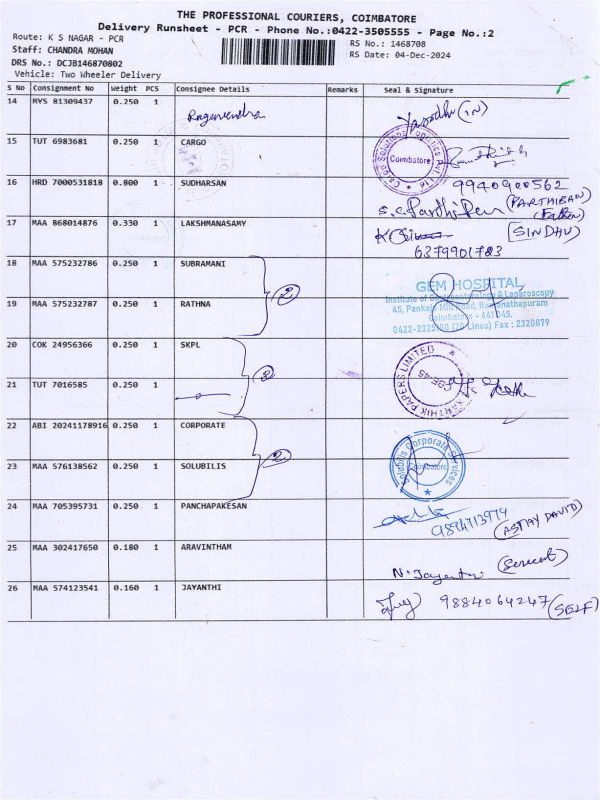 THE PROFESSIONAL COURIERS, COIMBATORE
Delivery Runsheet - PCR - Phone No.:0422-3505555 - Page No.:2
Route: K S NAGAR - PCR
RS No.: 1468708
Staff: CHANDRA MOHAN
RS Date: 04-Dec-2024
DRS No.: DCJB146870802
Vehicle: Two Wheeler Delivery
S No Consignment No Weight PCS Consignee Details Remarks Seal & Signature
14 MYS 81309437 0.250 1 Ragavendra
(IN)
15 TUT 6983681 0.250 1 CARGO
Cargo Solutions Logistics Pvt Ltd
Coimbatore
16 HRD 7000531818 0.800 1 SUDHARSAN 9940900562
(PARTHIBAN)
17 MAA 868014876 0.330 1 LAKSHMANASAMY (SINDHU)
6379901783
18 MAA 575232786 0.250 1 SUBRAMANI
2
GEM HOSPITAL
Institute of Gastroenterology & Laparoscopy
45, Pankaja Mill Road, Ramanathapuram
Coimbatore - 641 045.
0422-2325100 (20 Lines) Fax : 2320879
19 MAA 575232787 0.250 1 RATHNA
20 COK 24956366 0.250 1 SKPL
KARTHIK PAPERS LIMITED
CBE-45
21 TUT 7016585 0.250 1
22 ABI 20241178916 0.250 1 CORPORATE
2
Solubilis Corporate Services
Coimbatore
23 MAA 576138562 0.250 1 SOLUBILIS
24 MAA 705395731 0.250 1 PANCHAPAKESAN
25 MAA 302417650 0.180 1 ARAVINTHAM
N. Jayanthi
26 MAA 574123541 0.160 1 JAYANTHI 9884064247 (SELF)